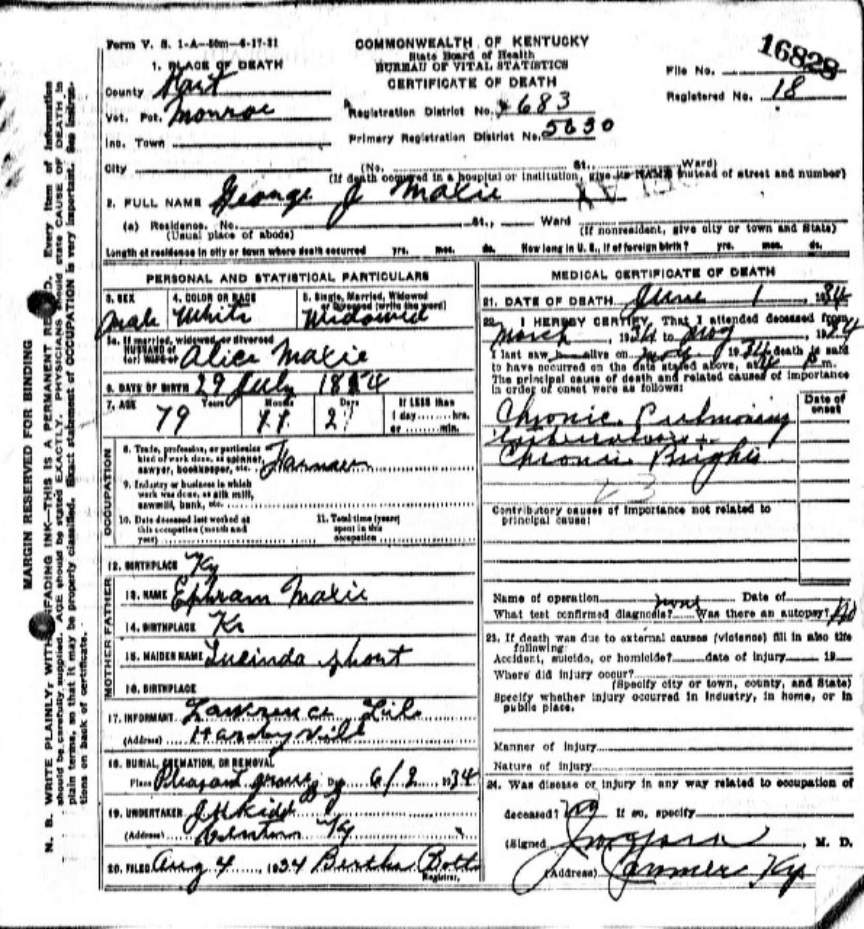 Form V. S. 1-A—50m—6-17-31
COMMONWEALTH OF KENTUCKY
State Board of Health
BUREAU OF VITAL STATISTICS
CERTIFICATE OF DEATH
File No. 16828
Registered No. 18
1. PLACE OF DEATH
County Hart
Vot. Pct. Monroe
Registration District No. 683
Inc. Town
Primary Registration District No. 5630
City (No. St., Ward)
(If death occurred in a hospital or institution, give its NAME instead of street and number)
2. FULL NAME George J Maxie
(a) Residence. No. St., Ward
(Usual place of abode) (If nonresident, give city or town and State)
Length of residence in city or town where death occurred yrs. mos. ds. How long in U. S., if of foreign birth? yrs. mos. ds.
PERSONAL AND STATISTICAL PARTICULARS
3. SEX Male
4. COLOR OR RACE White
5. Single, Married, Widowed or Divorced (write the word) Widowed
5a. If married, widowed, or divorced
HUSBAND of
(or) WIFE of Alice Maxie
6. DATE OF BIRTH 29 July 1854
7. AGE 79 Years Months Days
IF LESS than
1 day hrs.
or min.
OCCUPATION
8. Trade, profession, or particular
kind of work done, as spinner,
sawyer, bookkeeper, etc. Farmer
9. Industry or business in which
work was done, as silk mill,
sawmill, bank, etc.
10. Date deceased last worked at
this occupation (month and
year)
11. Total time (years)
spent in this
occupation
12. BIRTHPLACE Ky
FATHER
13. NAME Ephram Maxie
14. BIRTHPLACE Ky
MOTHER
15. MAIDEN NAME Lucinda Short
16. BIRTHPLACE
17. INFORMANT Lawrence
(Address) Hardyville
18. BURIAL, CREMATION, OR REMOVAL
Place Pleasant Grove Date 6/2 1934
19. UNDERTAKER J H Kidd
(Address) Ky
20. FILED Aug 4, 1934 Bertha Botts
Registrar.
MEDICAL CERTIFICATE OF DEATH
21. DATE OF DEATH June 1, 1934
22. I HEREBY CERTIFY, That I attended deceased from
March, 1934 to 1934
I last saw h alive on 1934 death is said
to have occurred on the date stated above, at m.
The principal cause of death and related causes of importance
in order of onset were as follows:
Date of onset
Chronic Pulmonary
tuberculosis +
Chronic Brights
23
Contributory causes of importance not related to
principal cause:
Name of operation Date of
What test confirmed diagnosis? none Was there an autopsy? No
23. If death was due to external causes (violence) fill in also the
following:
Accident, suicide, or homicide? date of injury 19
Where did injury occur?
(Specify city or town, county, and State)
Specify whether injury occurred in industry, in home, or in
public place.
Manner of injury
Nature of injury
24. Was disease or injury in any way related to occupation of
deceased? If so, specify
(Signed , M. D.
(Address) Canmer Ky
MARGIN RESERVED FOR BINDING
N. B. WRITE PLAINLY, WITH UNFADING INK—THIS IS A PERMANENT RECORD. Every item of information
should be carefully supplied. AGE should be stated EXACTLY. PHYSICIANS should state CAUSE OF DEATH in
plain terms, so that it may be properly classified. Exact statement of OCCUPATION is very important. See instruc-
tions on back of certificate.